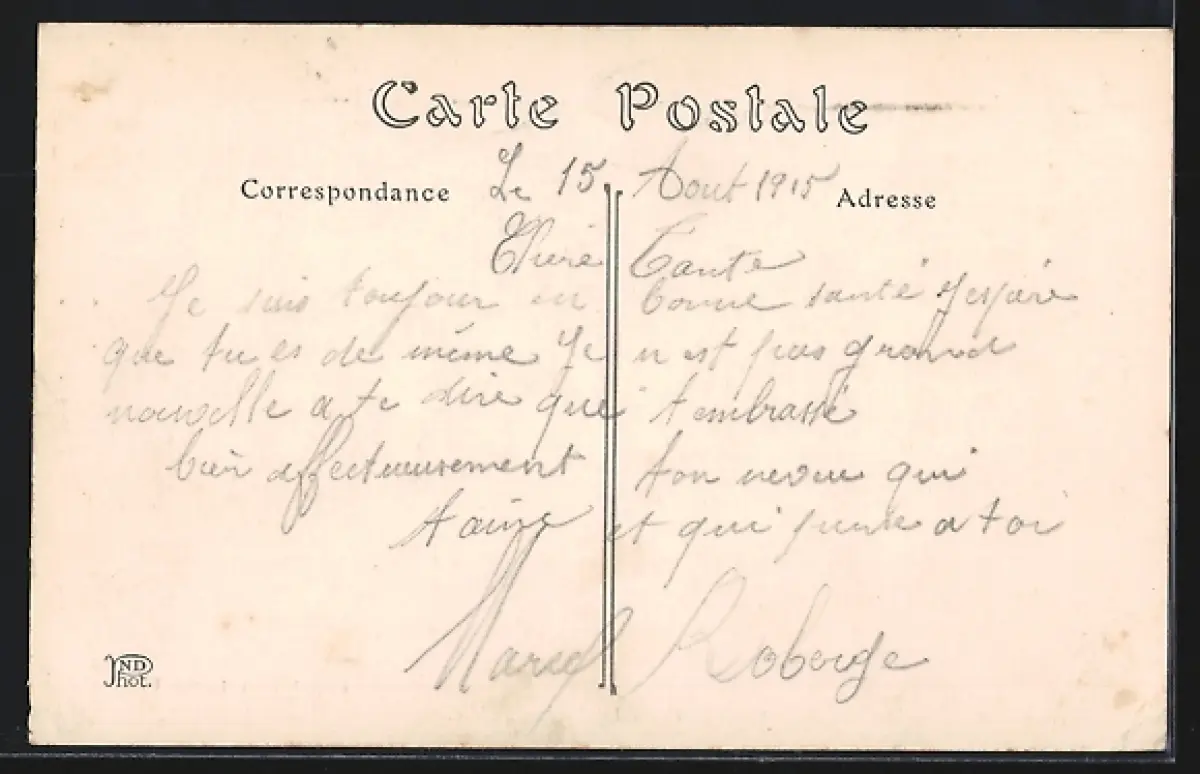 Carte Postale
Correspondance Le 15 Aout 1915 Adresse
Chère Tante
Je suis toujour en bonne santé j'espère
que tu es de même Je n est pas grand
nouvelle a te dire que t embrassé
bien affectueusement ton neveu qui
t aime et qui pense a toi
Marcel Roberge
ND
Phot.